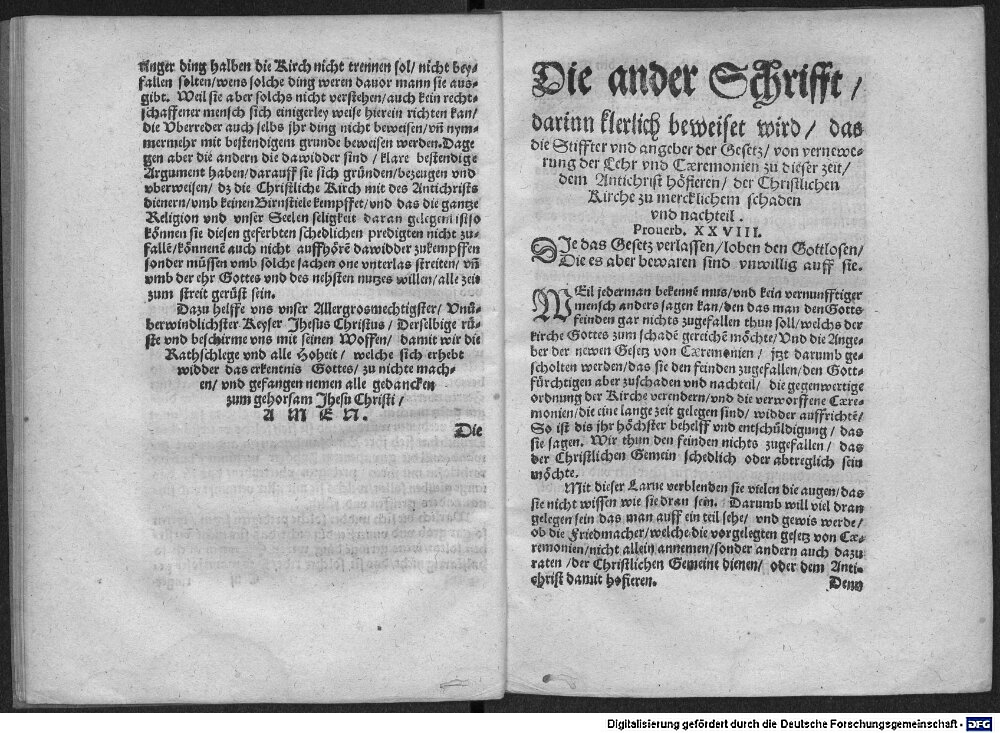 ringer ding halben die Kirch nicht trennen sol/ nicht bey-
fallen solten/wens solche ding weren dauor mann sie aus-
gibt. Weil sie aber solchs nicht verstehen/auch kein recht-
schaffener mensch sich einigerley weise hierein richten kan/
die Vberreder auch selbs jhr ding nicht beweisen/vñ nym-
mermehr mit bestendigem grunde beweisen werden.Dage
gen aber die andern die dawidder sind / klare bestendige
Argument haben/darauff sie sich gründen/bezeugen vnd
vberweisen/ dz die Christliche Kirch mit des Antichrists
dienern/vmb keinen Birnstiele kempffet/vnd das die gantze
Religion vnd vnser Seelen seligkeit daran gelegen ist/so
können sie diesen geferbten schedlichen predigten nicht zu-
fallē/könnenē auch nicht auffhörē dawidder zukempffen
sonder müssen vmb solche sachen one vnterlas streiten/ vñ
vmb der ehr Gottes vnd des nehsten nutzes willen/alle zeit
zum streit gerüst sein.
Dazu helffe vns vnser Allergrosmechtigster/ Vnü-
berwindlichster Keyser Jhesus Christus/ Derselbige rü-
ste vnd beschirme vns mit seinen Woffen/ damit wir die
Rathschlege vnd alle Hoheit/ welche sich erhebt
widder das erkentnis Gottes/ zu nichte mach-
en/ vnd gefangen nemen alle gedancken
zum gehorsam Jhesu Christi/
A M E N.
Die
Die ander Schrifft/
darinn klerlich beweiset wird/ das
die Stiffter vnd angeber der Gesetz/ von vernewe-
rung der Lehr vnd Cæremonien zu dieser zeit/
dem Antichrist höfieren/ der Christlichen
Kirche zu mercklichem schaden
vnd nachteil.
Prouerb. XXVIII.
Die das Gesetz verlassen/loben den Gottlosen/
Die es aber bewaren sind vnwillig auff sie.
WEil jederman bekennē mus/vnd kein vernunfftiger
mensch anders sagen kan/den das man den Gotts
feinden gar nichts zugefallen thun soll/welchs der
kirche Gottes zum schadē gereichē möchte/Vnd die Ange-
ber der newen Gesetz von Cæremonien/ jtzt darumb ge-
scholten werden/das sie den feinden zugefallen/den Gott-
fürchtigen aber zuschaden vnd nachteil/ die gegenwertige
ordnung der Kirche verendern/vnd die verworffene Cære-
monien/die eine lange zeit gelegen sind/ widder auffrichtē/
So ist dis jhr höchster behelff vnd entschüldigung/ das
sie sagen. Wir thun den feinden nichts zugefallen/ das
der Christlichen Gemein schedlich oder abtreglich sein
möchte.
Mit dieser Larue verblenden sie vielen die augen/das
sie nicht wissen wie sie dran sein. Darumb will viel dran
gelegen sein das man auff ein teil sehe/ vnd gewis werde/
ob die Friedmacher/welche die vorgelegten gesetz von Cæ-
remonien/nicht allein annemen/sonder andern auch dazu
raten/der Christlichen Gemeine dienen/ oder dem Anti-
christ damit hofieren.
Denn
Digitalisierung gefördert durch die Deutsche Forschungsgemeinschaft - DFG